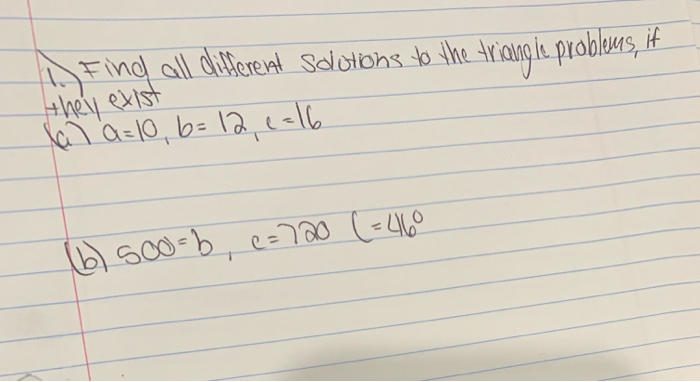 1.) Find all different solutions to the triangle problems, if
they exist
(a) a=10, b= 12, c=16
(b) 500=b, c=720 C=46°